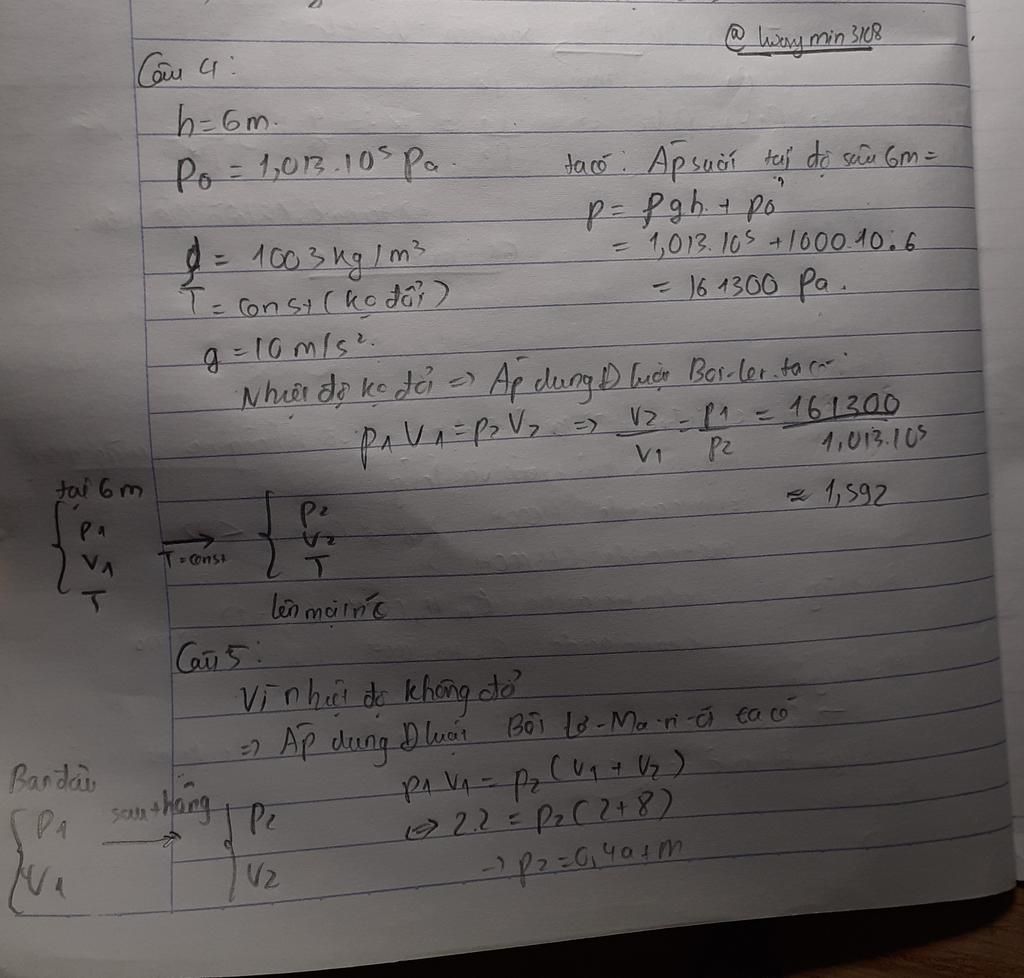 @ hương min 3108
Câu 4:
h = 6m.
P₀ = 1,013.10⁵ Pa.
ρ = 1003 kg/m³
T = const (ko đổi)
g = 10 m/s².
ta có: Áp suất tại độ sâu 6m =
p = ρgh + p₀
= 1,013.10⁵ + 1000.10.6
= 161300 Pa.
Nhiệt độ ko đổi => Áp dụng Đ luật Bôi-lơ. ta có:
p₁V₁ = p₂V₂ => V₂/V₁ = p₁/p₂ = 161300/1,013.10⁵
≈ 1,592
tại 6m
{ p₁ V₁ T
T = const →
{ p₂ V₂ T
lên mặt nc
Câu 5:
Vì nhiệt độ không đổi
=> Áp dụng Đ luật Bôi lơ-Ma-ri-ốt ta có
p₁V₁ = p₂(V₁ + V₂)
⇔ 2.2 = p₂(2+8)
→ p₂ = 0,4atm
Ban đầu
{ P₁ V₁
→
{ P₂ V₂